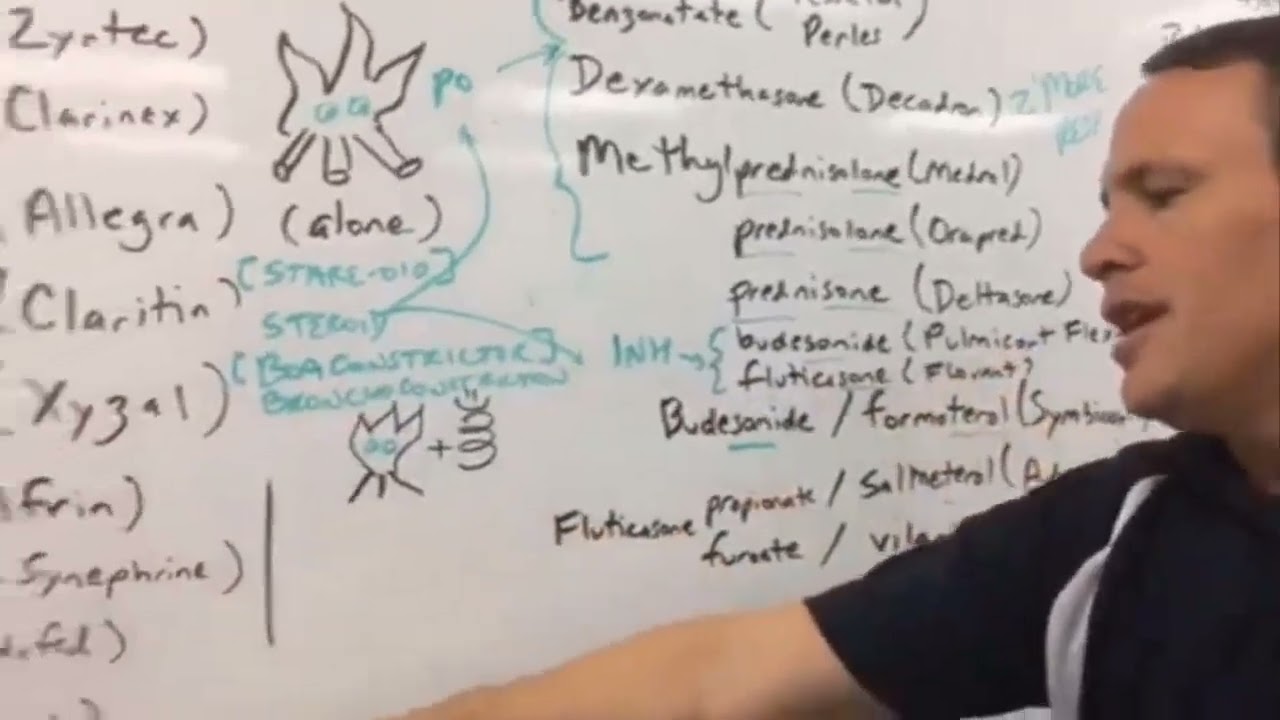 Zyrtec)
Clarinex)
Allegra)
Claritin)
Xyzal)
frin)
Synephrine)
fed)
PO
(alone)
[STARE-OID]
STEROID
[BOA CONSTRICTOR]
BRONCHOCONSTRICTION
+
Benzonatate (
Perles )
Dexamethasone (Decadron) 2 MORE
Methylprednisolone (Medrol)
prednisolone (Orapred)
prednisone (Deltasone)
INH → { budesonide (Pulmicort Flex
fluticasone (Flovent)
Budesonide / formoterol (Symbicor
Fluticasone propionate / Salmeterol (A
furoate / vila